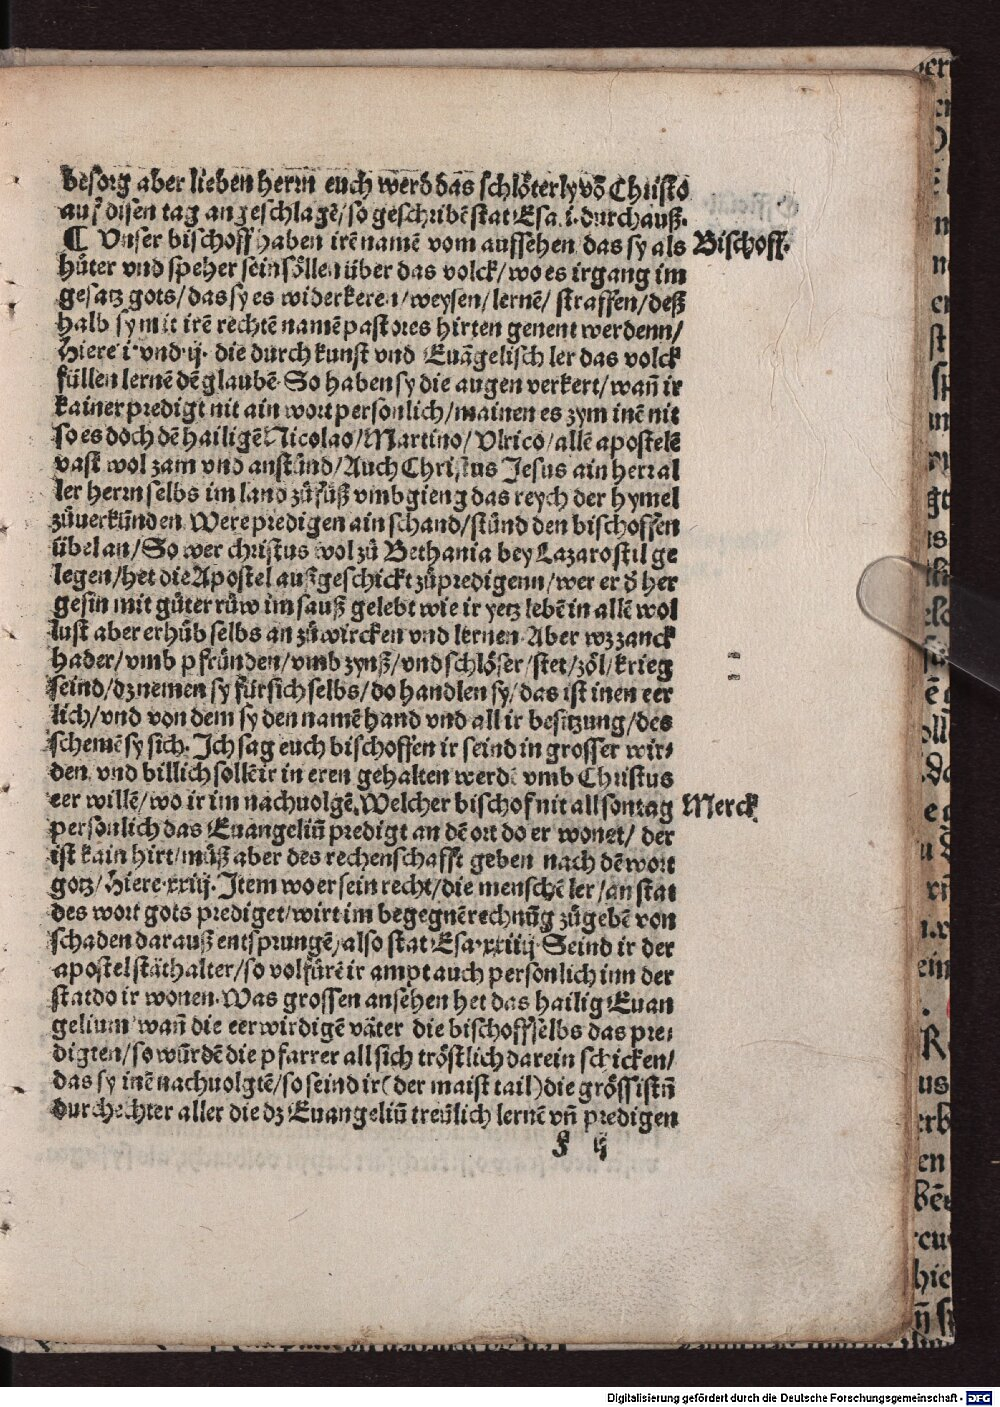 besorg aber lieben herrn euch werd̄ das schlöterly vō Christo
auf disen tag angeschlagē/so geschribē stat Esa.i.durchauß.
¶ Vnser bischoff haben irē namē vom auffsehen das sy als
Bischoff.
hüter vnd speher sein söllen über das volck/wo es irgang im
gesatz gots/das sy es widerkeren/weysen/lernē/straffen/deß
halb sy mit irē rechtē namē pastores hirten genent werdenn/
Hiere i·vnd·ij· die durch kunst vnd Euāgelisch ler das volck
füllen lernē dē glaubē·So haben sy die augen verkert/wañ ir
kainer predigt nit ain wort personlich/mainen es zym inē nit
so es doch dē hailigē Nicolao/Martino/Vlrico/allē apostelē
vast wol zam vnd anstůnd/Auch Christus Jesus ain herr al
ler herrn selbs im land zů fůß vmbgieng das reych der hymel
zůuerkünden Were predigen ain schand/stünd den bischoffen
übel an/So wer christus wol zů Bethania bey Lazaro stil ge
legen/het die Apostel außgeschickt zůpredigenn/wer er d̄ her
gesin mit gůter růw im sauß gelebt wie ir yetz lebē in allē wol
lust aber er hůb selbs an zů wircken vnd lernen·Aber wz zanck
hader/vmb pfründen/vmb zynß/vnd schlöser/stet/zöl/krieg
seind/dz nemen sy für sich selbs/do handlen sy/das ist inen eer
lich/vnd von dem sy den namē hand vnd all ir besitzung/des
schemē sy sich. Ich sag euch bischoffen ir seind in grosser wir⸗
den vnd billich sollē ir in eren gehalten werdē vmb Christus
eer willē/wo ir im nachuolgē.Welcher bischof nit all sontag
Merck
personlich das Euangeliū predigt an dē ort do er wonet/ der
ist kain hirt/můß aber des rechenschafft geben nach dē wort
gotz/Hiere·xxiij·Item wo er sein recht/die menschē ler/an stat
des wort gots prediget/wirt im begegnē rechnūg zůgebē von
schaden darauß entsprungē/also stat Esa·xxiiij·Seind ir der
apostel stäthalter/so volfürē ir ampt auch personlich inn der
stat do ir wonen·Was grossen ansehen het das hailig Euan
gelium wañ die eerwirdigē väter die bischoff selbs das pre⸗
digten/so würdē die pfarrer all sich tröstlich darein schicken/
das sy inē nachuolgtē/so seind ir(der maist tail)die grössistñ
durchechter aller die dz Euangeliū treülich lernē vñ predigen